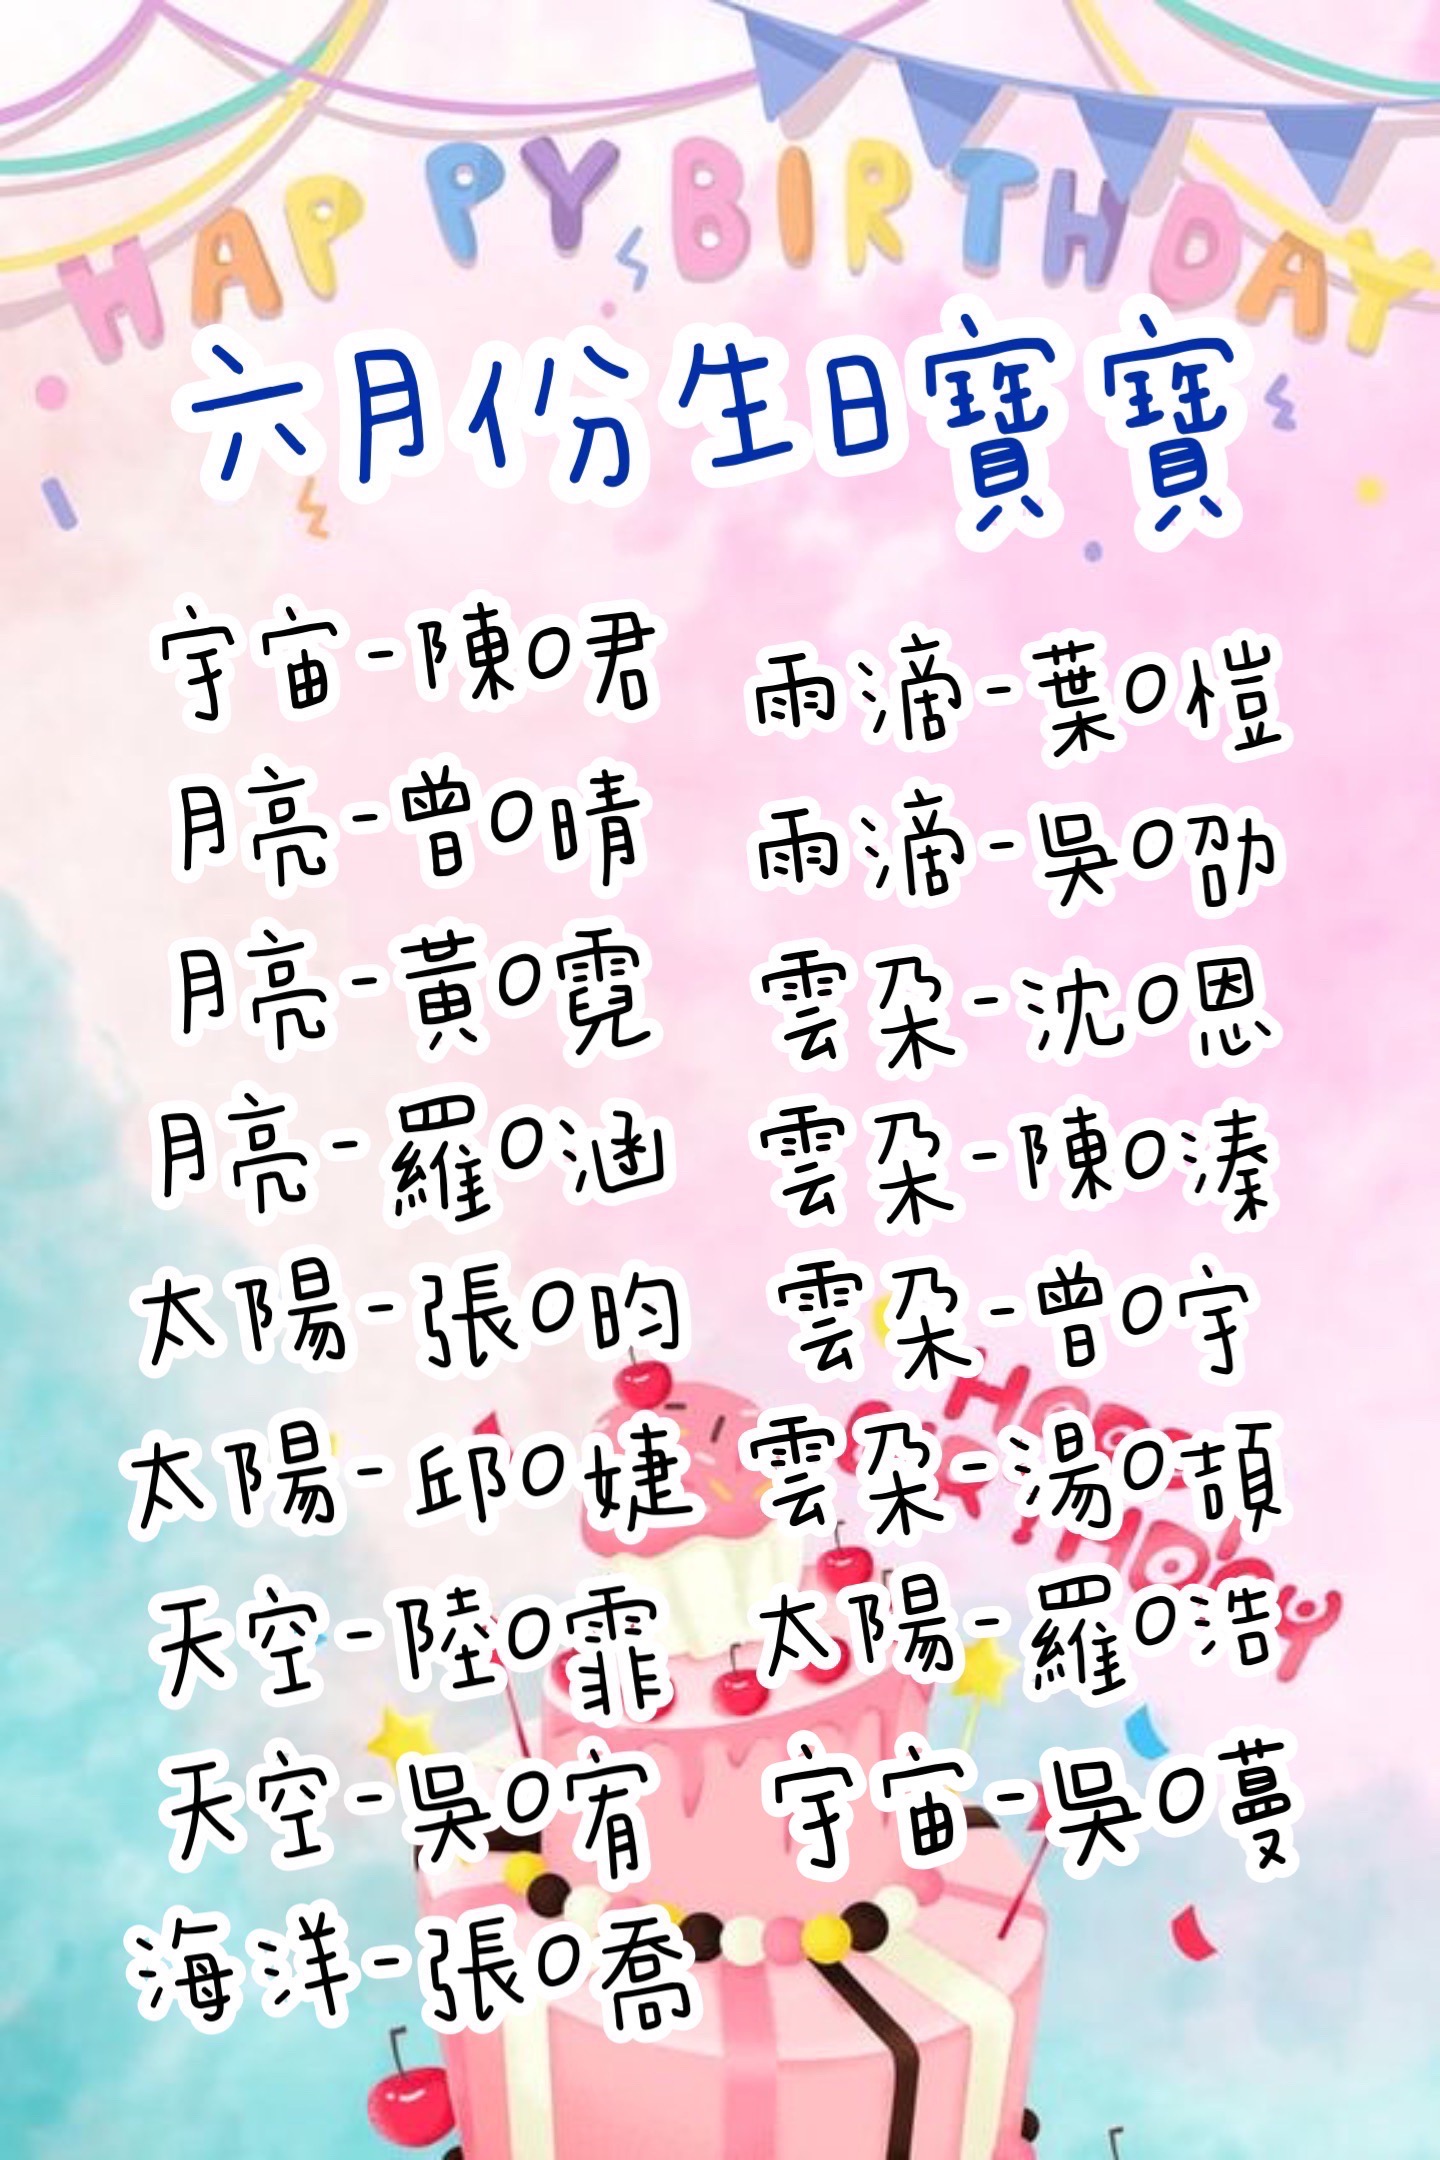 HAPPY BIRTHDAY
六月份生日寶寶
宇宙-陳O君
月亮-曾O晴
月亮-黃O霓
月亮-羅O涵
太陽-張O昀
太陽-邱O婕
天空-陸O霏
天空-吳O宥
海洋-張O喬
雨滴-葉O愷
雨滴-吳O劭
雲朵-沈O恩
雲朵-陳O溱
雲朵-曾O宇
雲朵-湯O頡
太陽-羅O浩
宇宙-吳O蔓